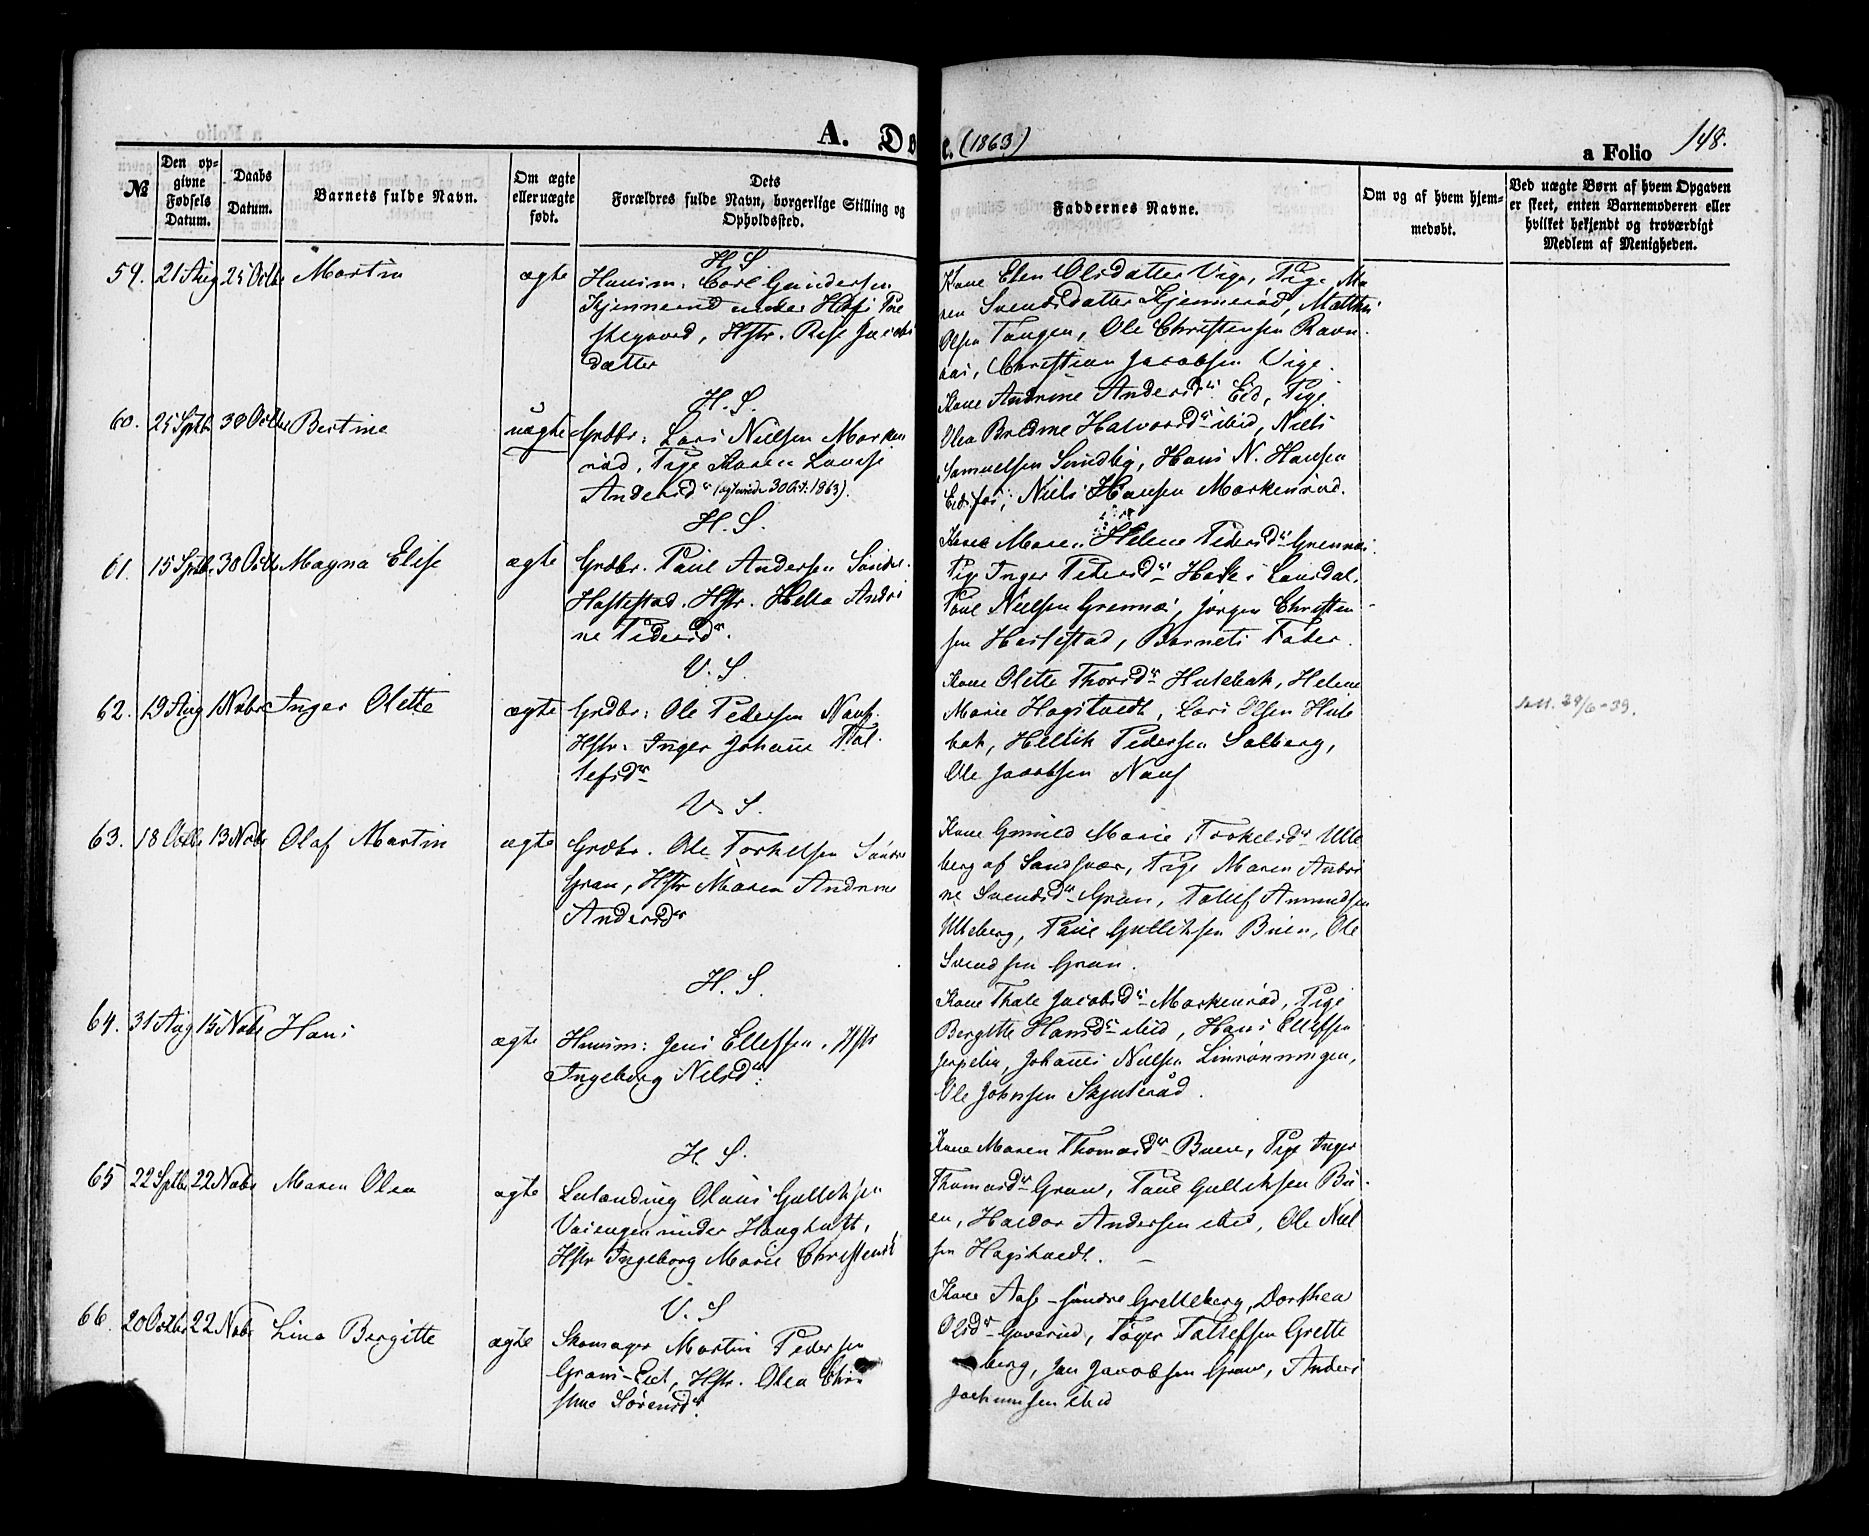 A. Dø e. (1863) a Folio 148.
№
Den opgivne Fødsels Datum.
Daabs Datum.
Barnets fulde Navn.
Om ægte eller uægte født.
Dets Forældres fulde Navn, borgerlige Stilling og Opholdssted.
Faddernes Navne.
Om og af hvem hjemmedøbt.
Ved uægte Børn af hvem Opgaven er skeet, enten Barnemoderen eller hvilket bekjendt og troværdigt Medlem af Menigheden.
H. S.
59. 21 Aug 25 Octbr Martin ægte Huusm: Carl Gundersen
Kjennerud under
skegaard, Hstr.
datter
Kone Elen Olsdatter Vige, Pige Ma-
ren Svendsdatter Kjennerød, Mathis
Olsen Tangen, Ole Christensen Ravn-
aas, Christian Jacobsen Vige.
H. S.
60. 25 Sptbr 30 Octbr Bertine uægte Grdbr: Lars Nielsen Marken
rød, Pige Karen Lovise
Andersdr (ægteviede 30 Oct. 1863).
Kone Andrine Andersdr Eid, Pige
Olea Bredine Halvorsdr ibid, Niels
Samuelsen Sundby, Hans N. Hansen
Eidsfos, Niels Hansen Markenrød.
H. S.
61. 15 Sptbr 30 Octbr Magna Elise ægte Grdbr. Paul Andersen Søndre
Hastestad, Hstr. Andri
ne Pedersdr.
Kone Maren Helene Pedersdr Grennes.
Pige Inger Pedersdr
Paul Nielsen Grennes, Jørgen Christen-
sen Harlestad, Barnets Fader.
V. S.
62. 19 Aug 1 Novbr Inger Olette ægte Grdbr: Ole Pedersen Nauf.
Hstr: Inger Johanne Tol
lefsdr
Kone Olette Thorsdr Hulebak, Helene
Marie Hagstvedt, Lars Olsen Hule
bak, Hellik Pedersen Solberg,
Ole Jacobsen Nauf
29/6-39.
V. S
63. 18 Octbr 13 Novbr Olaf Martin ægte Grdbr. Ole Torkelsen Søndre
Gran, Hstr Maren Andrine
Andersdr
Kone Gunild Marie Torkelsdr Ulle
berg af Sandsvær, Pige Maren Andri
ne Svendsdr Gran, Tollef Amundsen
Ulleberg, Paul Gulliksen Buen, Ole
Svendsen Gran.
H. S.
64. 31 Aug 15 Novbr Hans ægte Huusm: Jens Ellefsen, Hstr
Ingeborg Nilsdr:
Kone Thale Jacobsdr Markenrød, Pige
Bergitte Hansdr ibid, Hans Ellefsen
Johannes Nielsen Linrønningen,
Ole Johnsen Skjuterød.
H. S.
65 22 Sptbr 22 Novbr Maren Olea ægte Olaus Gulliksen
under
Hstr Ingeborg Marie Christensdr
Kone Maren Thomasdr Buen, Pige Inger
Thomasdr Gran, Paul Gulliksen Bu-
en, Haldor Andersen ibid, Ole Niel
sen Hagstvedt.
V. S
66. 20 Octbr 22 Novbr Lina Bergitte ægte Skomager Martin Pedersen
Grans-Eiet, Hstr. Olea Chri
stine Sørensdr.
Kone Aase søndre Gretteberg, Dorthea
Olsdr Gaverud, Tøger Tollefsen Grette
berg, Jan Jacobsen Gran, Anders
Jochumsen ibid